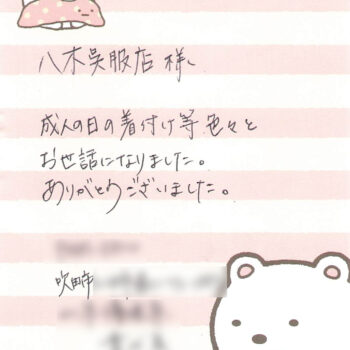 八木呉服店 様、
成人の日の着付け等 色々と
お世話になりました。
ありがとうございました。
吹田市